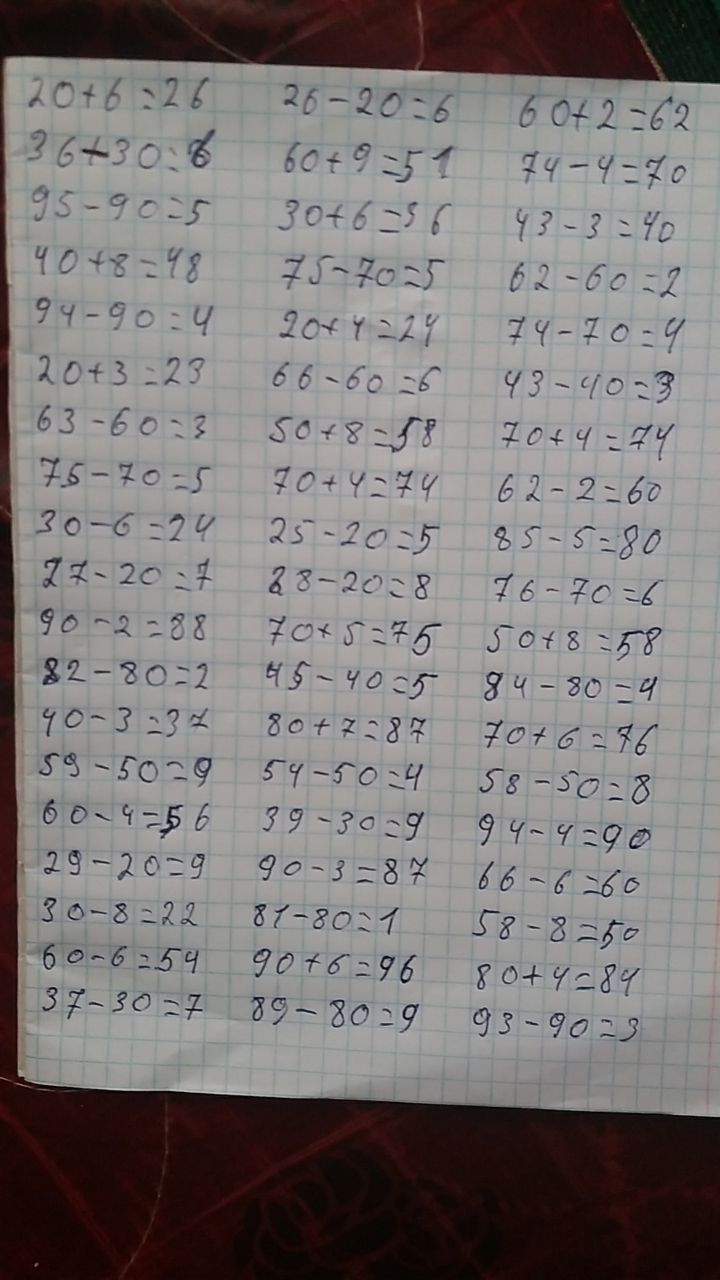 20+6=26 26-20=6 60+2=62
36-30=6 60+9=51 74-4=70
95-90=5 30+6=36 43-3=40
40+8=48 75-70=5 62-60=2
94-90=4 20+4=24 74-70=4
20+3=23 66-60=6 43-40=3
63-60=3 50+8=58 70+4=74
75-70=5 70+4=74 62-2=60
30-6=24 25-20=5 85-5=80
27-20=7 28-20=8 76-70=6
90-2=88 70+5=75 50+8=58
82-80=2 45-40=5 84-80=4
40-3=37 80+7=87 70+6=76
59-50=9 54-50=4 58-50=8
60-4=56 39-30=9 94-4=90
29-20=9 90-3=87 66-6=60
30-8=22 81-80=1 58-8=50
60-6=54 90+6=96 80+4=84
37-30=7 89-80=9 93-90=3